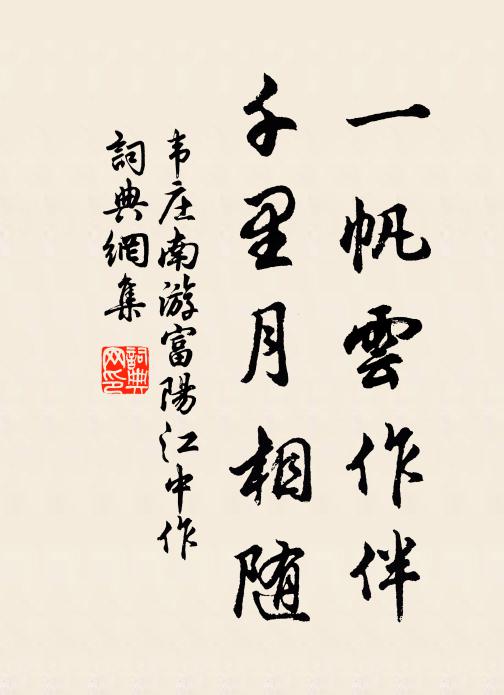 一帆雲作伴
千里月相随
韦庄南游富陽江中作
詞典網集
詞典网印